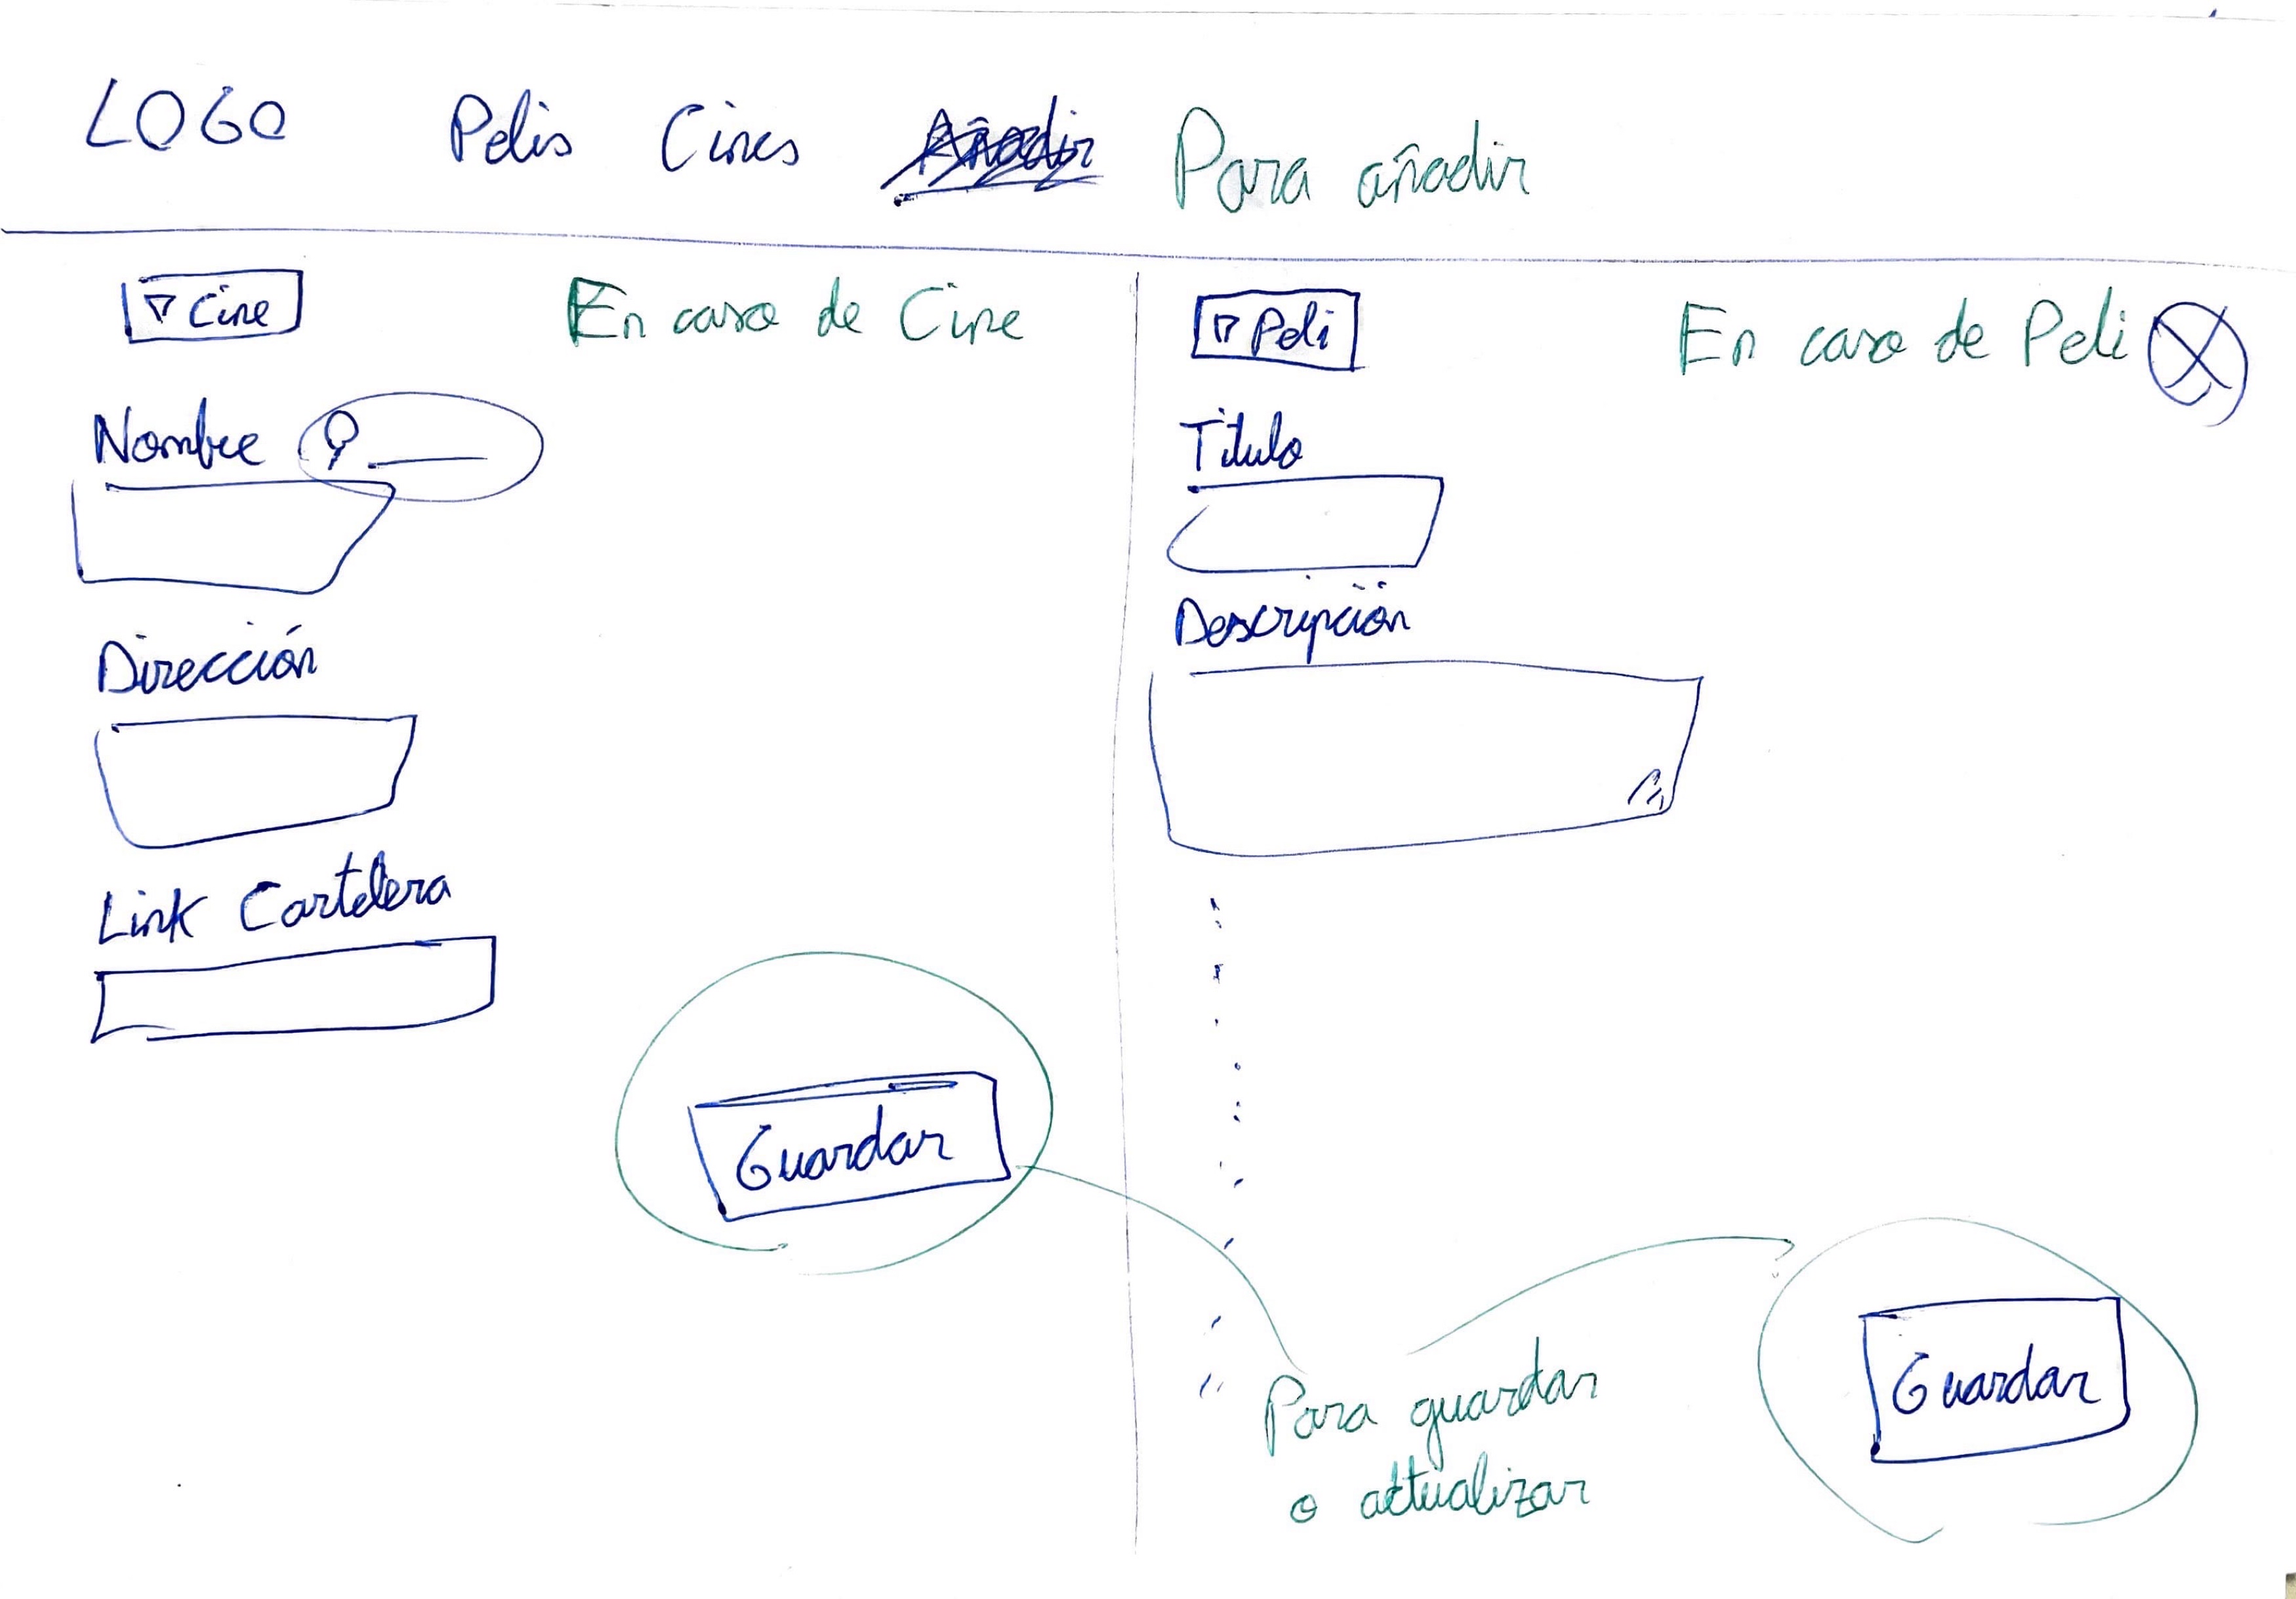 LOGO Pelis Cines Añadir Para añadir
▽ Cine En caso de Cine
Nombre
Dirección
Link Cartelera
Guardar
▽ Peli En caso de Peli
Titulo
Descripción
Para guardar
o actualizar
Guardar